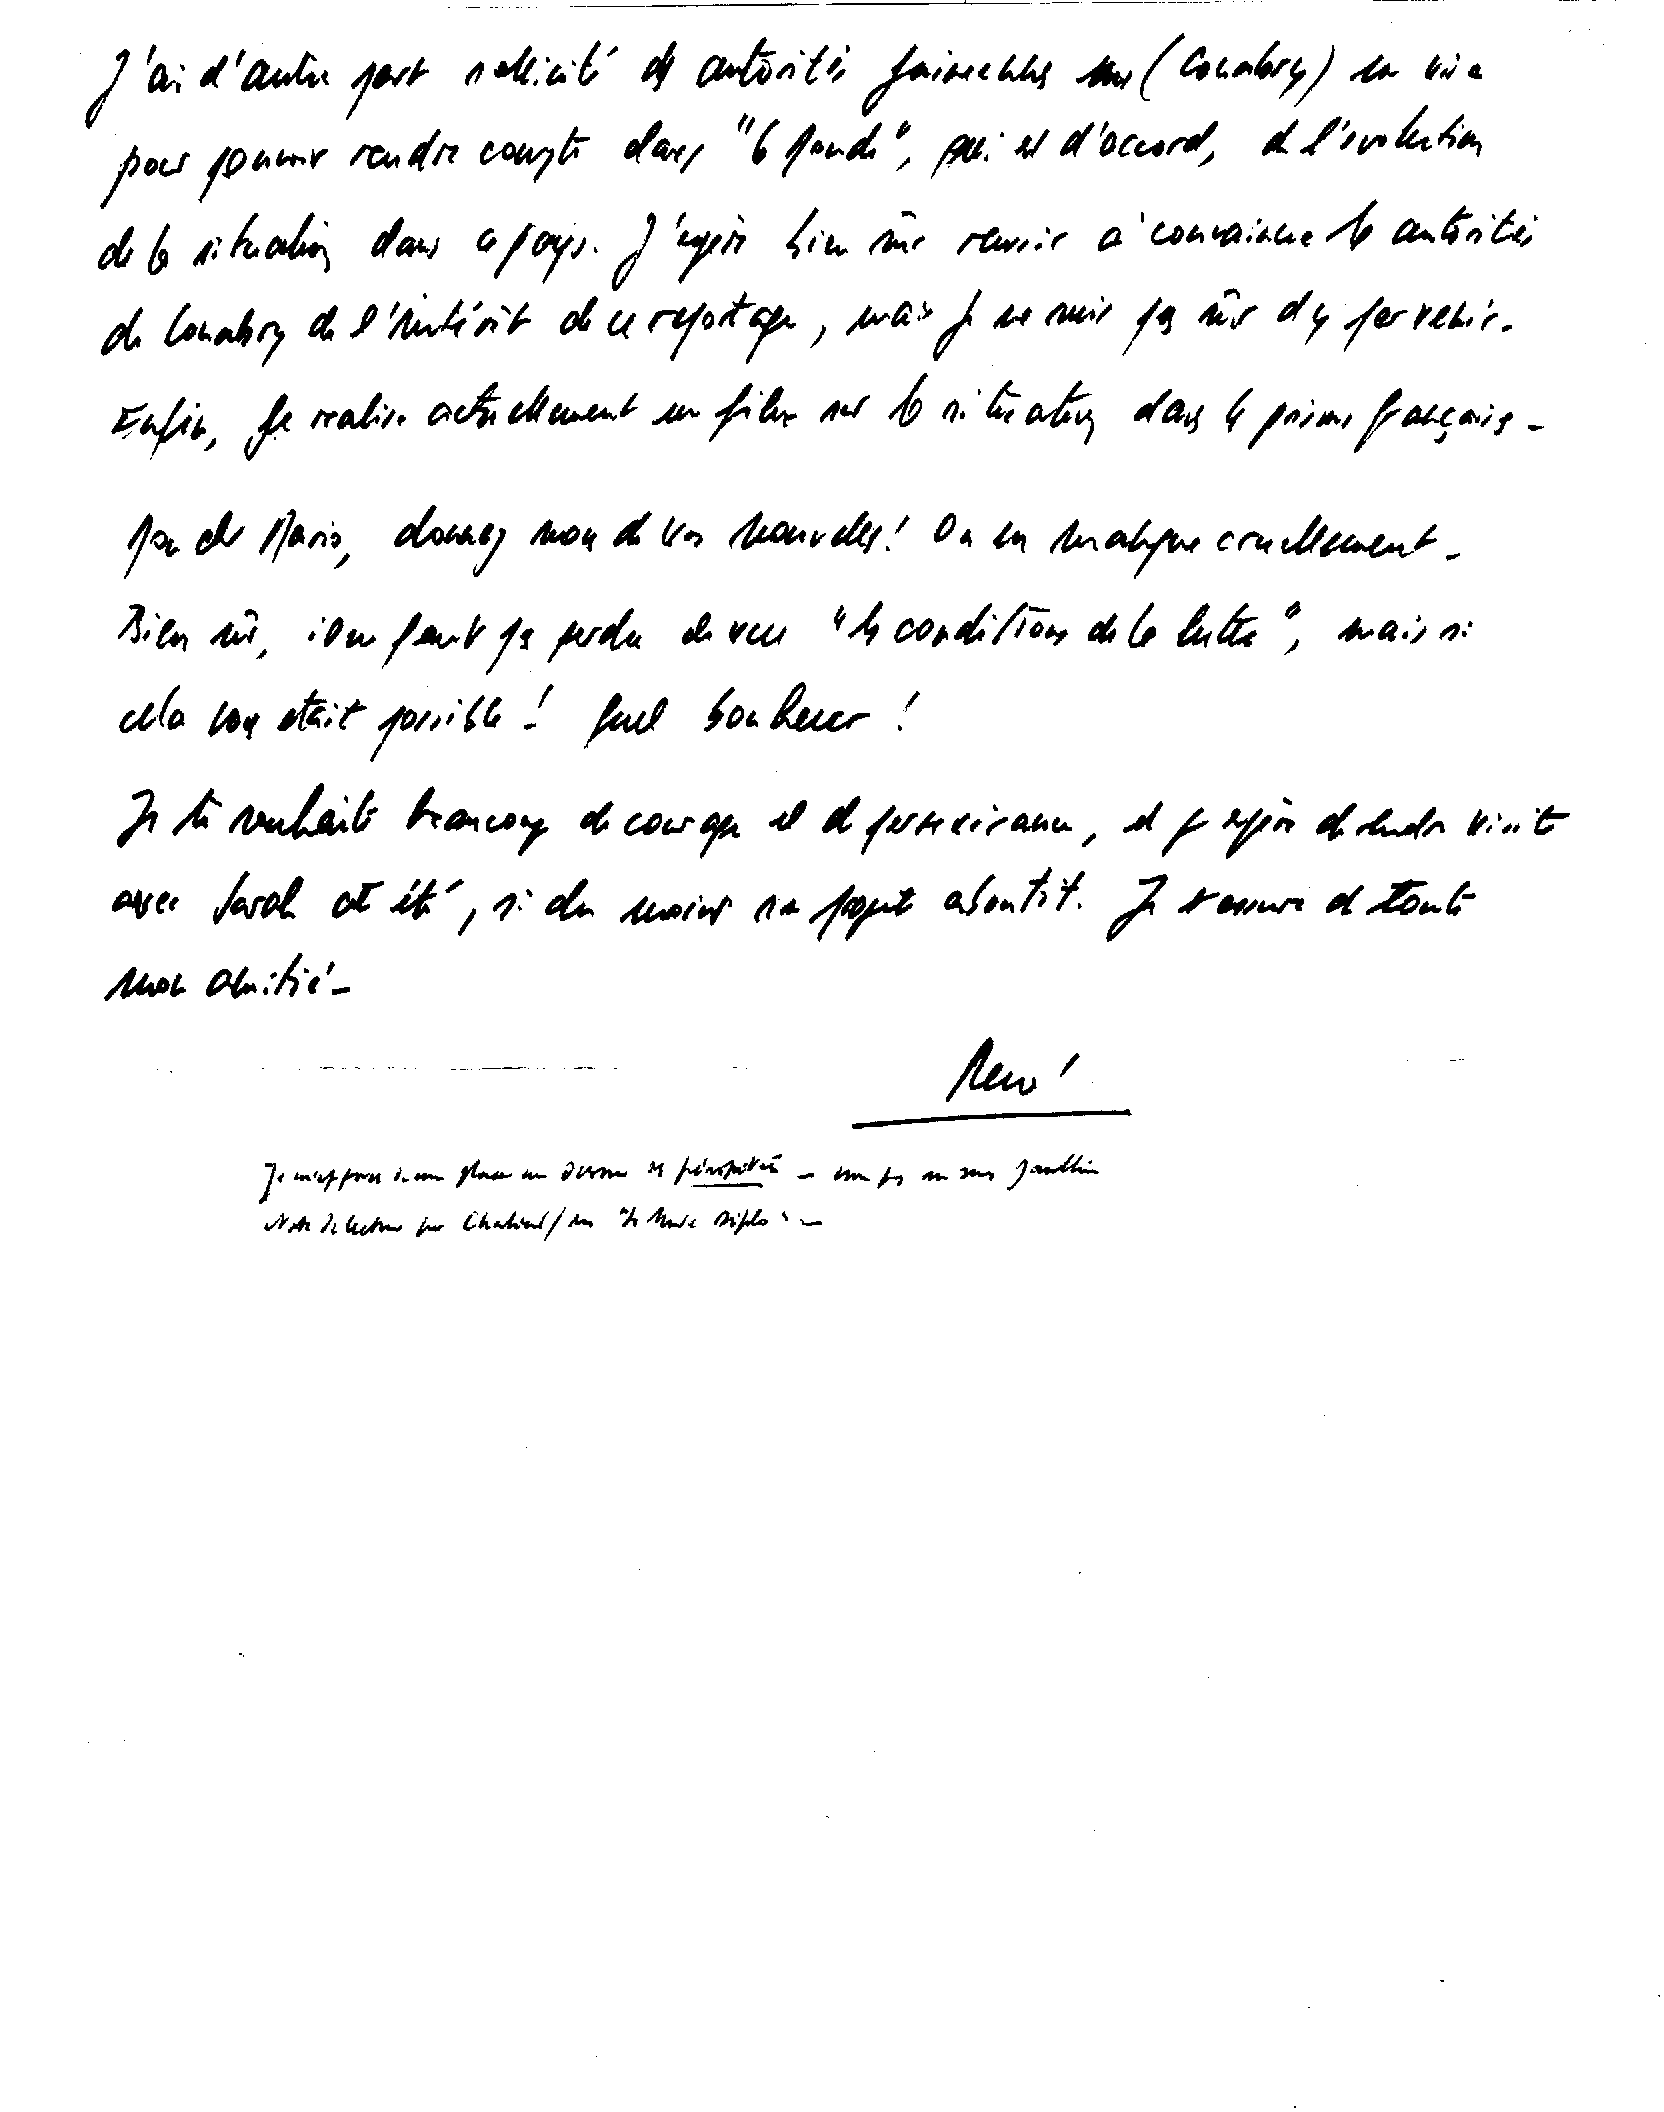 J'ai d'autre part sollicité des autorités guinéennes (Conakry) un visa
pour pouvoir rendre compte dans "le Monde", qui est d'accord, de l'évolution
de la situation dans ce pays. J'espère bien sûr réussir à convaincre les autorités
de Conakry de l'intérêt de ce reportage, mais je ne suis pas sûr d'y parvenir.
Enfin, je réalise actuellement un film sur la situation dans les prisons françaises -
Mon cher Mario, donnez nous de vos nouvelles! On en manque cruellement -
Bien sûr, il ne faut pas perdre de vue "les conditions de la lutte", mais si
cela vous était possible! Quel bonheur!
Je te souhaite beaucoup de courage et de persévérance, et j'espère te rendre visite
avec Sarah cet été, si du moins ce projet aboutit. Je t'assure de toute
mon amitié -
René
Je
Note de lecture par Chaliand / in "le Monde diplo" -